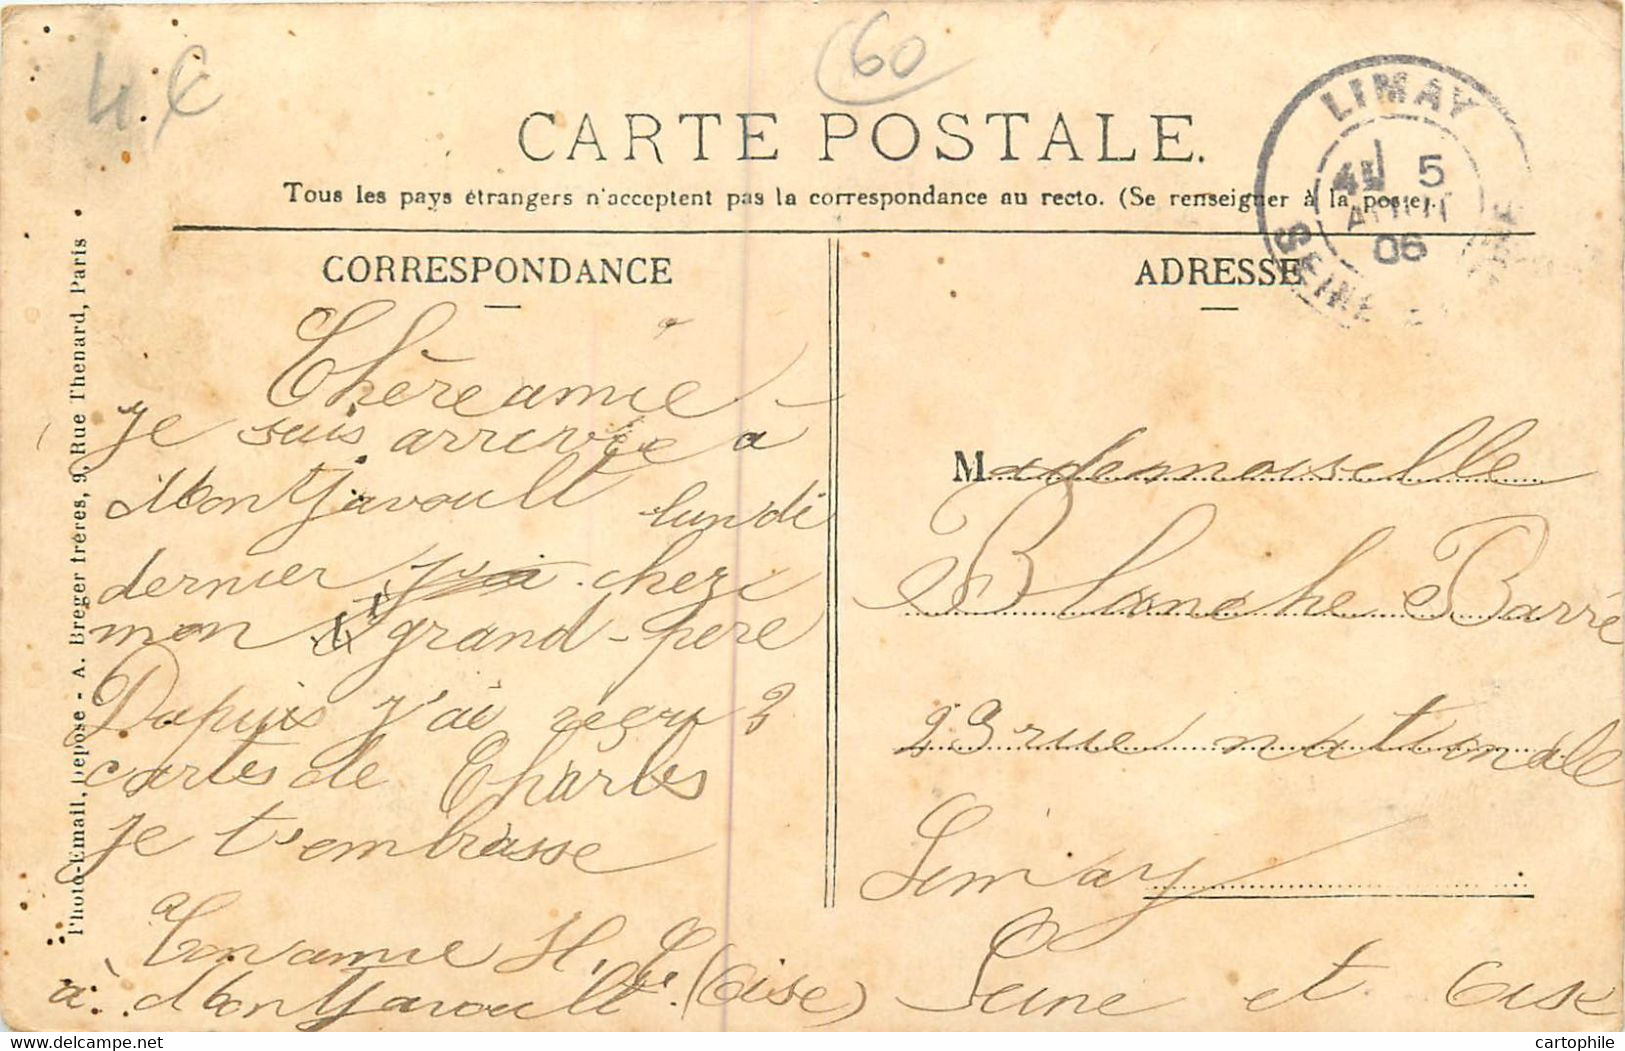 4 €
60
CARTE POSTALE.
Tous les pays étrangers n'acceptent pas la correspondance au recto. (Se renseigner à la poste).
LIMAY
5
AOUT
06
SEINE
CORRESPONDANCE
Chère amie
je suis arrivée a
Montjavoult lundi
dernier chez
mon grand-pere
Dupuix j'ai reçu 3
cartes de Charles
je t'embrasse
Ton amie H.
à Montjavoult (Oise)
ADRESSE
Mademoiselle
Blanche Barré
23 rue nationale
Limay
Seine et Oise
Photo-Email, Déposé - A. Breger frères, 9, Rue Thenard, Paris
cartophile